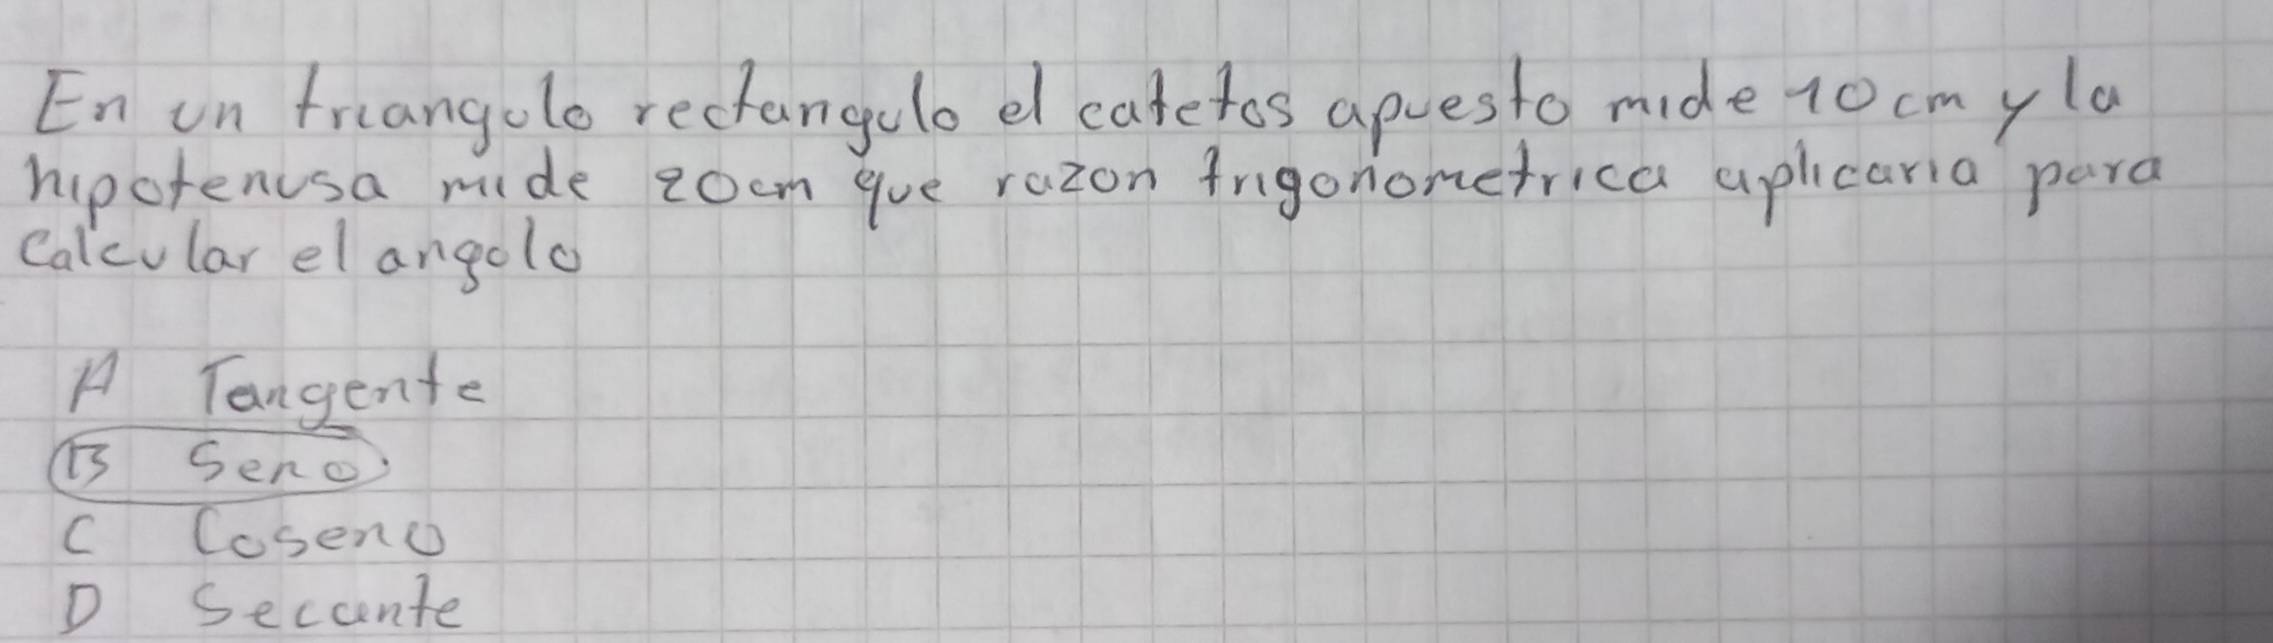 En un triangulo rectangulo el catetos apuesto mide 10 cm y la
hipotenusa mide 20cm que razon trigonometrica aplicaria para
calcular el angolo
A Tangente
B Seno
C Coseno
D Secante